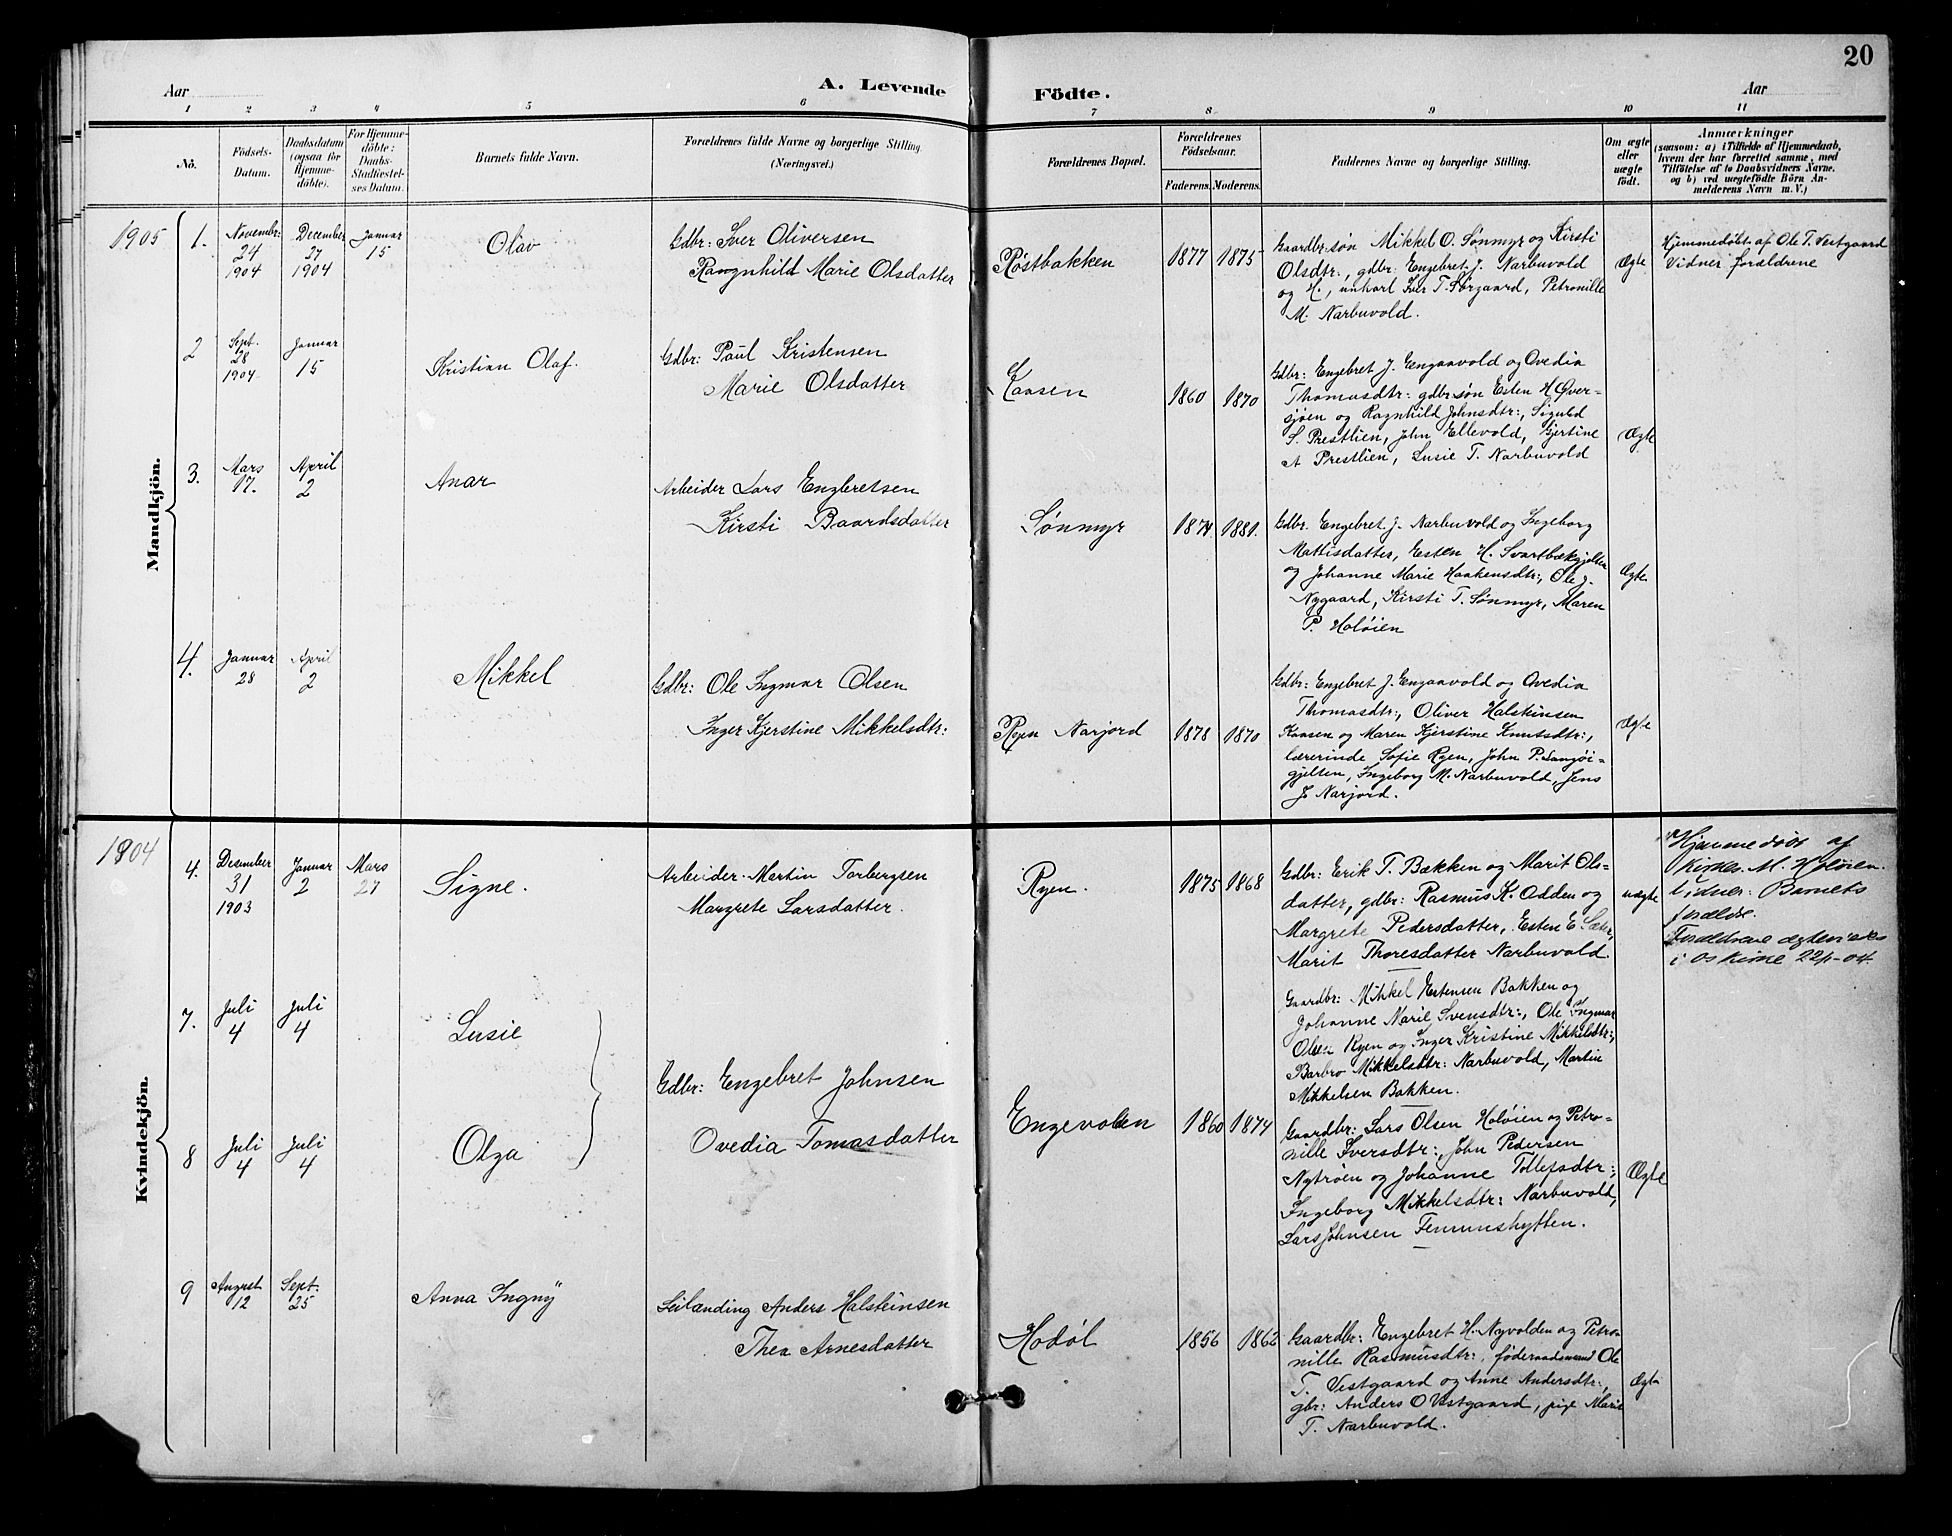 20
Aar
A. Levende
Födte.
Aar
1 2 3 4 5 6 7 8 9 10 11
No.
Födsels-
Datum.
Daabsdatum
(ogsaa for
Hjemme-
döbte).
For Hjemme-
döbte:
Daabs-
Stadfæstel-
ses Datum.
Barnets fulde Navn.
Forældrenes fulde Navne og borgerlige Stilling.
(Næringsvei.)
Forældrenes Bopæl.
Forældrenes
Födselsaar.
Faderens. Moderens.
Faddernes Navne og borgerlige Stilling.
Om ægte
eller
uægte
födt.
Anmærkninger
(saasom: a) i Tilfælde af Hjemmedaab,
hvem der har forrettet samme, med
Tilföielse af to Daabsvidners Navne,
og b) ved uægtefödte Börn An-
melderens Navn m. V.)
Mandkjön.
1905
1.
Novembr.
24
1904
December
27
1904
Januar
15
Olav
Gdbr: Iver Oliversen
Rangnhild Marie Olsdatter
Røstbakken
1877 1875
Gaardbr: søn Mikkel O. Sønmyr og Kirsti
Olsdtr., gdbr: Engebret J. Narbuvold
og H., unkarl Iver T. Sørgaard, Petronille
M. Narbuvold.
Ægte
Hjemmedøbt af Ole T. Vestgaard
Vidner forældrene
2
Sept.
28
1904
Januar
15
Kristian Olaf.
Gdbr: Paul Kristensen
Marie Olsdatter
Kaasen
1860 1870
Gdbr: Engebret J. Engaavold og Ovedia
Thomasdtr: gdbr.søn Esten H. Øver-
sjøen og Ragnhild Johnsdtr:, Sigurd
S. Prestlien, John Ellevold, Gjertine
A Prestlien, Lusie T. Narbuvold
Ægte
3.
Mars
17.
April
2
Anar
Arbeider Lars Engebretsen
Kirsti Baardsdatter
Sønmyr
1874 1881.
Gdbr. Engebret J. Narbuvold og Ingeborg
Mattisdatter, Esten H. Svartbækgjelten
og Johanne Marie Haakensdtr:, Ole J.
Nygaard, Kirsti T. Sønmyr, Maren
P. Holøien
Ægte
4.
Januar
28
April
2
Mikkel
Gdbr: Ole Ingmar Olsen
Inger Kjerstine Mikkelsdtr:
Ryen Narjord
1878 1870
Gdbr: Engebret J. Engaavold og Ovedia
Thomasdtr:, Oliver Halstensen
Kaasen og Maren Kjerstine Knutsdtr:,
lærerinde Sofie Ryen, John P. Langøi-
gjelten, Ingeborg M. Narbuvold, Jens
J. Narjord.
Ægte
Kvindekjön.
1904
4.
December
31
1903
Januar
2
Mars
27
Signe.
Arbeider Martin Torbergsen
Margrete Larsdatter.
Ryen.
1875 1868
Gdbr: Erik T. Bækken og Marit Ols-
datter, gdbr: Rasmus K. Odden og
Margrete Pedersdatter, Esten E. Sæter,
Marit Thoresdatter Narbuvold.
uægte
Hjemmedøbt af
Kirkes. M. Holøien.
Vidner: Barnets
forældre.
Forældrene ægteviedes
i Os kirke 22/4-04.
7.
Juli
4
Juli
4
Lusie
Gaardbr: Mikkel Estensen Bakken og
Johanne Marie Svensdtr:, Ole Ingmar
Olsen Ryen og Inger Kristine Mikkelsdtr:,
Barbro Mikkelsdtr: Narbuvold, Martin
Mikkelsen Bakken.
Gdbr: Engebret Johnsen
Ovedia Tomasdatter
Engevolden
1860 1874
8
Juli
4
Juli
4
Olga
Gaardbr: Lars Olsen Holøien og Petro-
nille Iversdtr:, John Pedersen
Nytrøen og Johanne Tollefsdtr:,
Ingeborg Mikkelsdtr: Narbuvold,
Lars Johnsen Femunshytten.
Ægte
9
August
12
Sept.
25
Anna Ingny
Leilænding Anders Halsteinsen
Thea Arnesdatter
Hodøl
1856 1862
Gaardbr: Engebret H. Nyvolden og Petro-
nille Rasmusdtr:, føderaadsmand Ole
T. Vestgaard og Anne Andersdtr:,
gbr: Anders O Vestgaard, pige Marie
T. Narbuvold.
Ægte